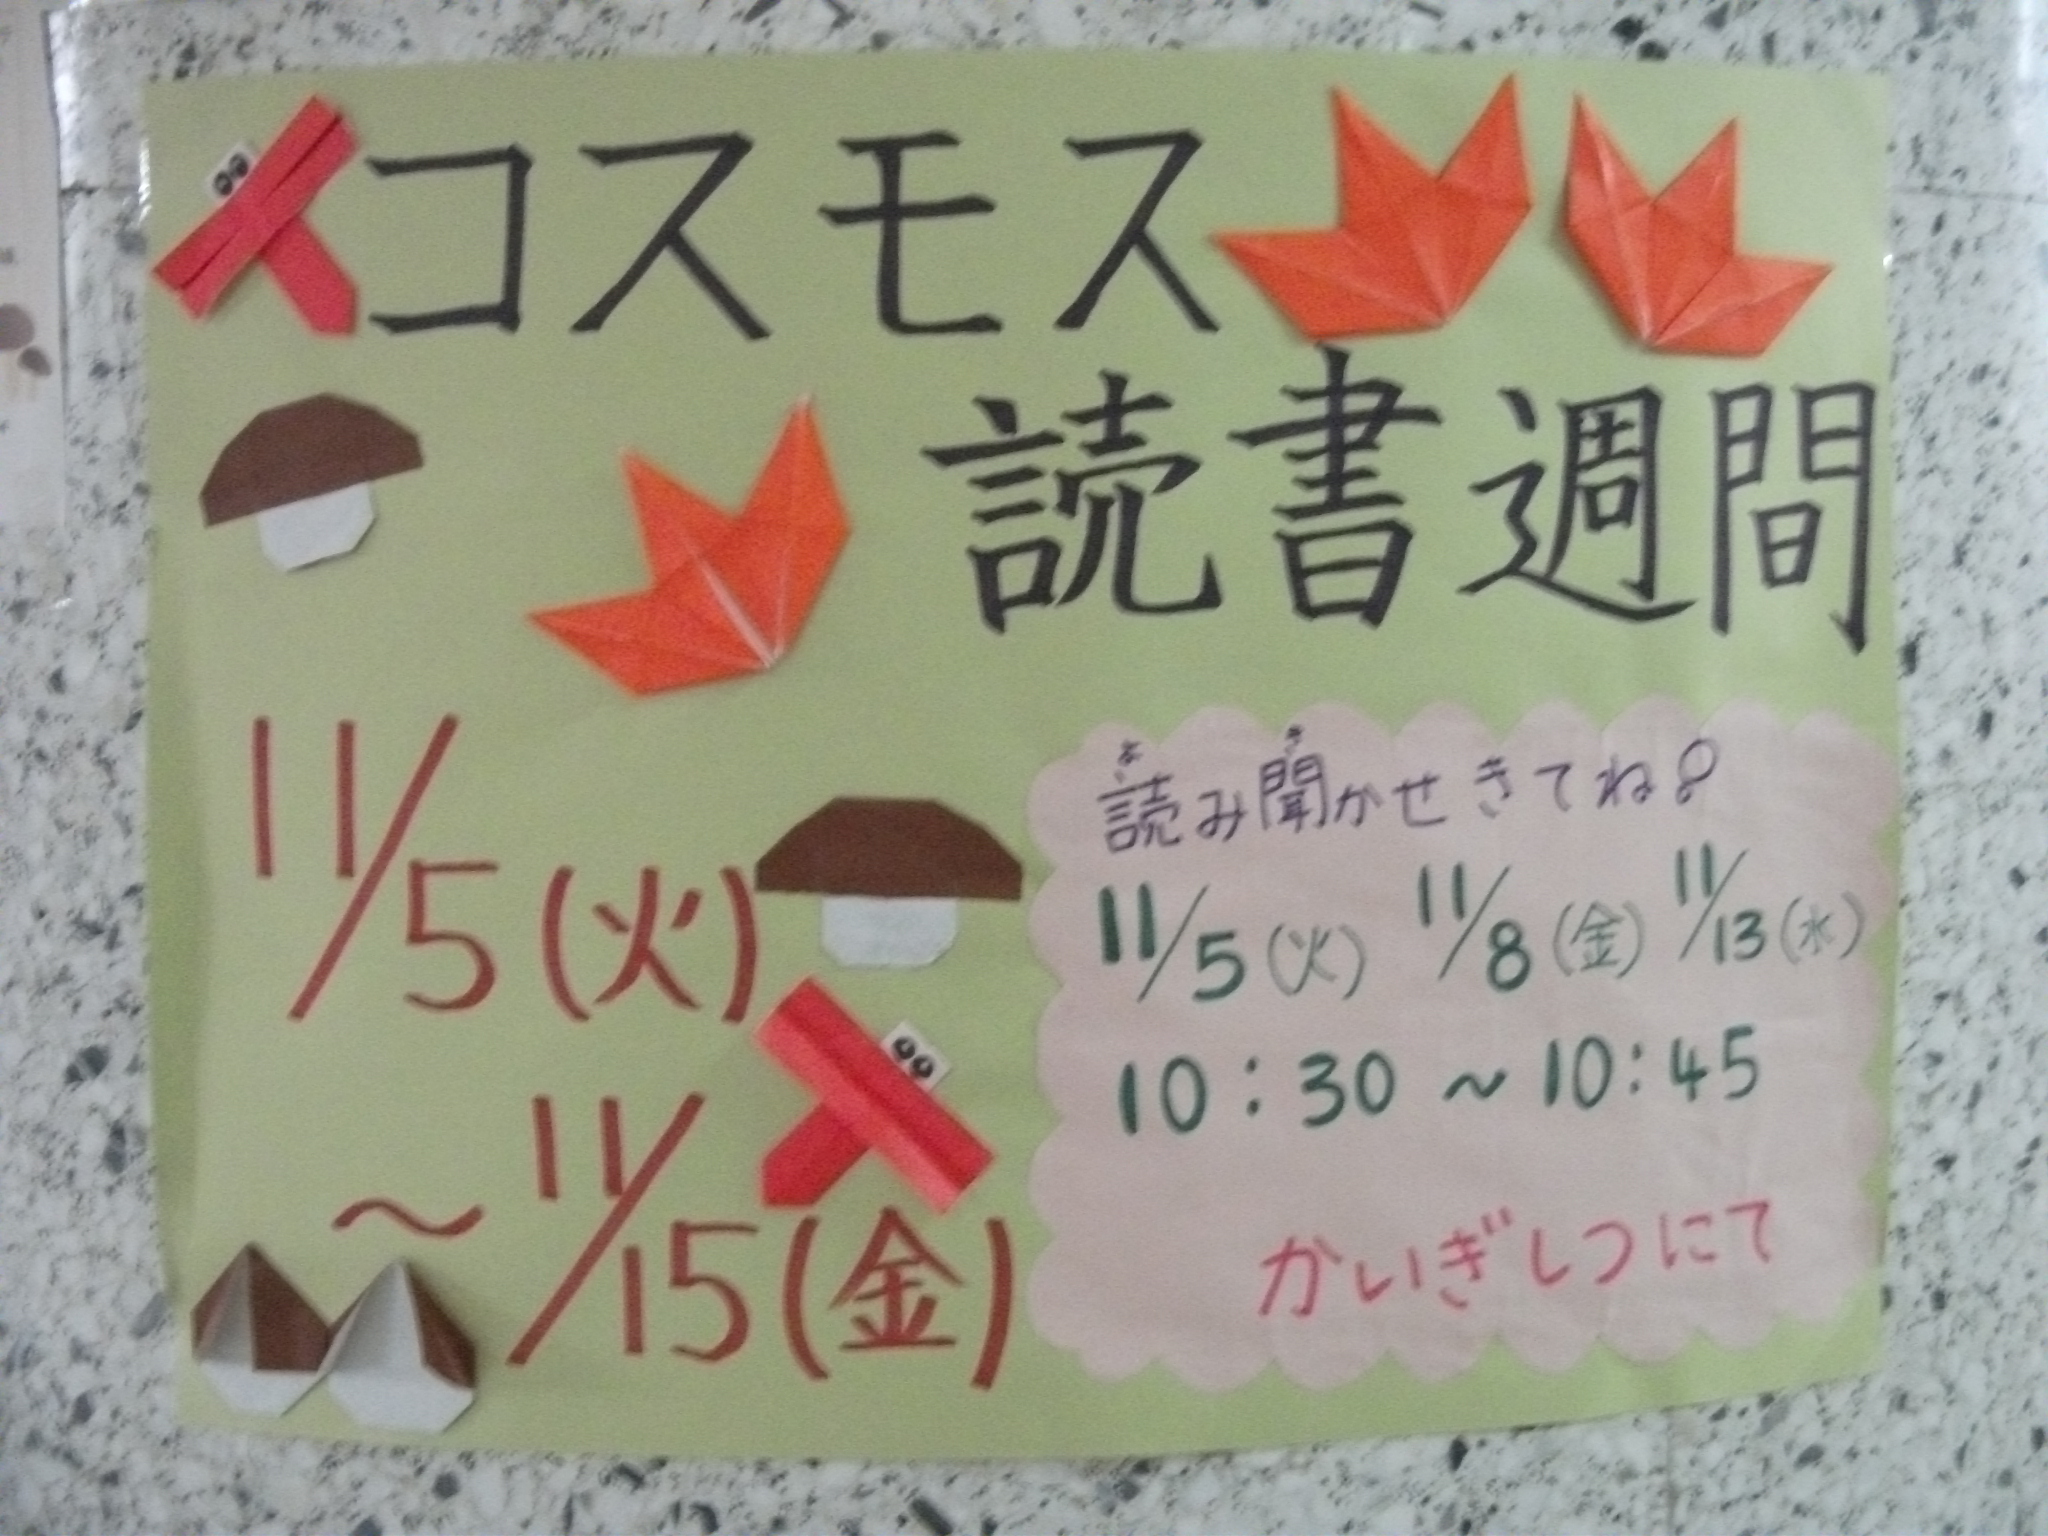 コスモス
読書週間
11/5(火)
～11/15(金)
読み聞かせきてね!
11/5(火) 11/8(金) 11/13(水)
10:30～10:45
かいぎしつにて